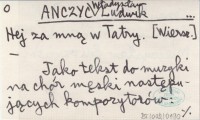 o
Władysław
ANCZYC Ludwik
Hej za mną w Tatry. [Wiersz]
Jako tekst do muzyki
na chór męski następu-
jących kompozytorów:
%